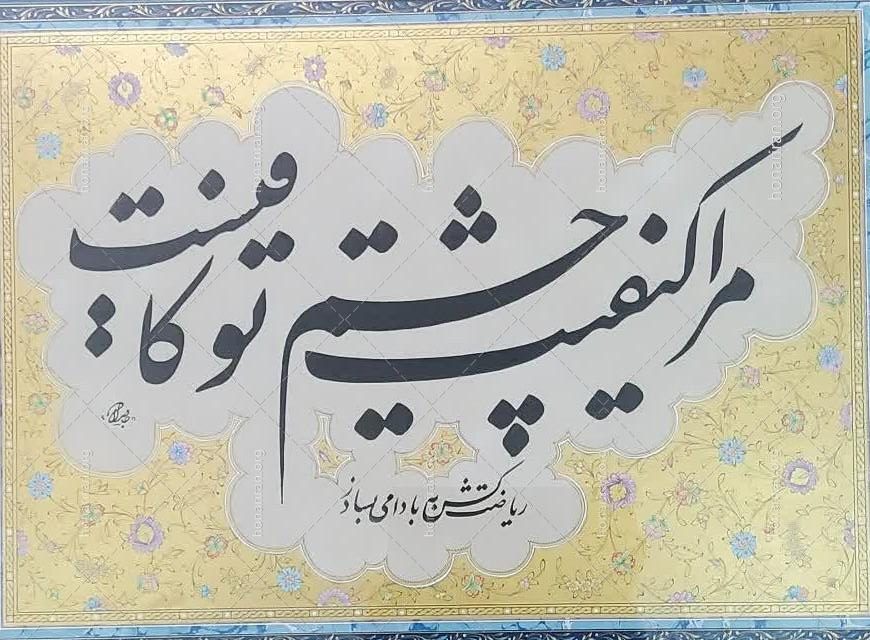 مرا کیفیت چشم تو کافیست
ریاضت کش به بادامی بسازد